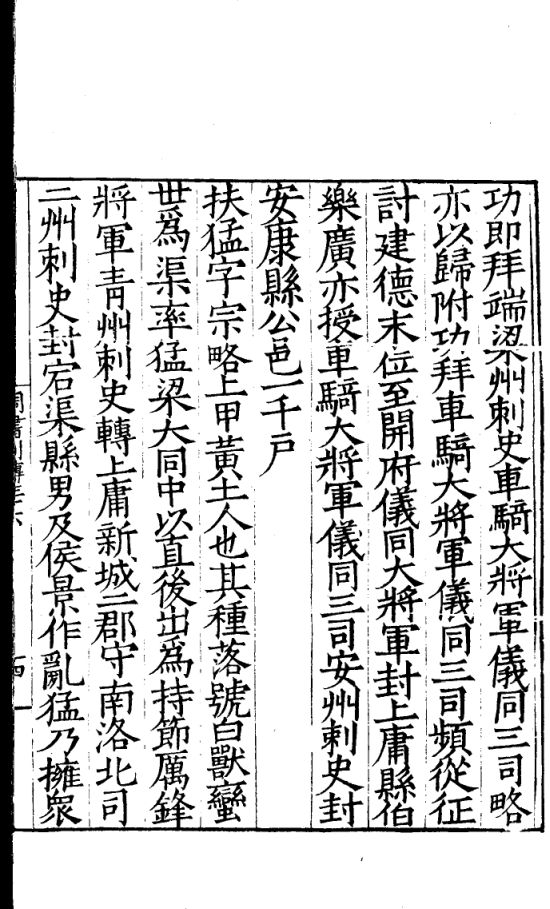 功即拜端梁州刺史車騎大將軍儀同三司略
亦以歸附功拜車騎大將軍儀同三司頻從征
討建德末位至開府儀同大將軍封上庸縣伯
樂廣亦授車騎大將軍儀同三司安州刺史封
安康縣公邑一千戶
扶猛字宗略上甲黃土人也其種落號白獸蠻
世爲渠率猛梁大同中以直後出爲持節厲鋒
將軍青州刺史轉上庸新城二郡守南洛北司
二州刺史封宕渠縣男及侯景作亂猛乃擁衆
周書列傳三六
十四